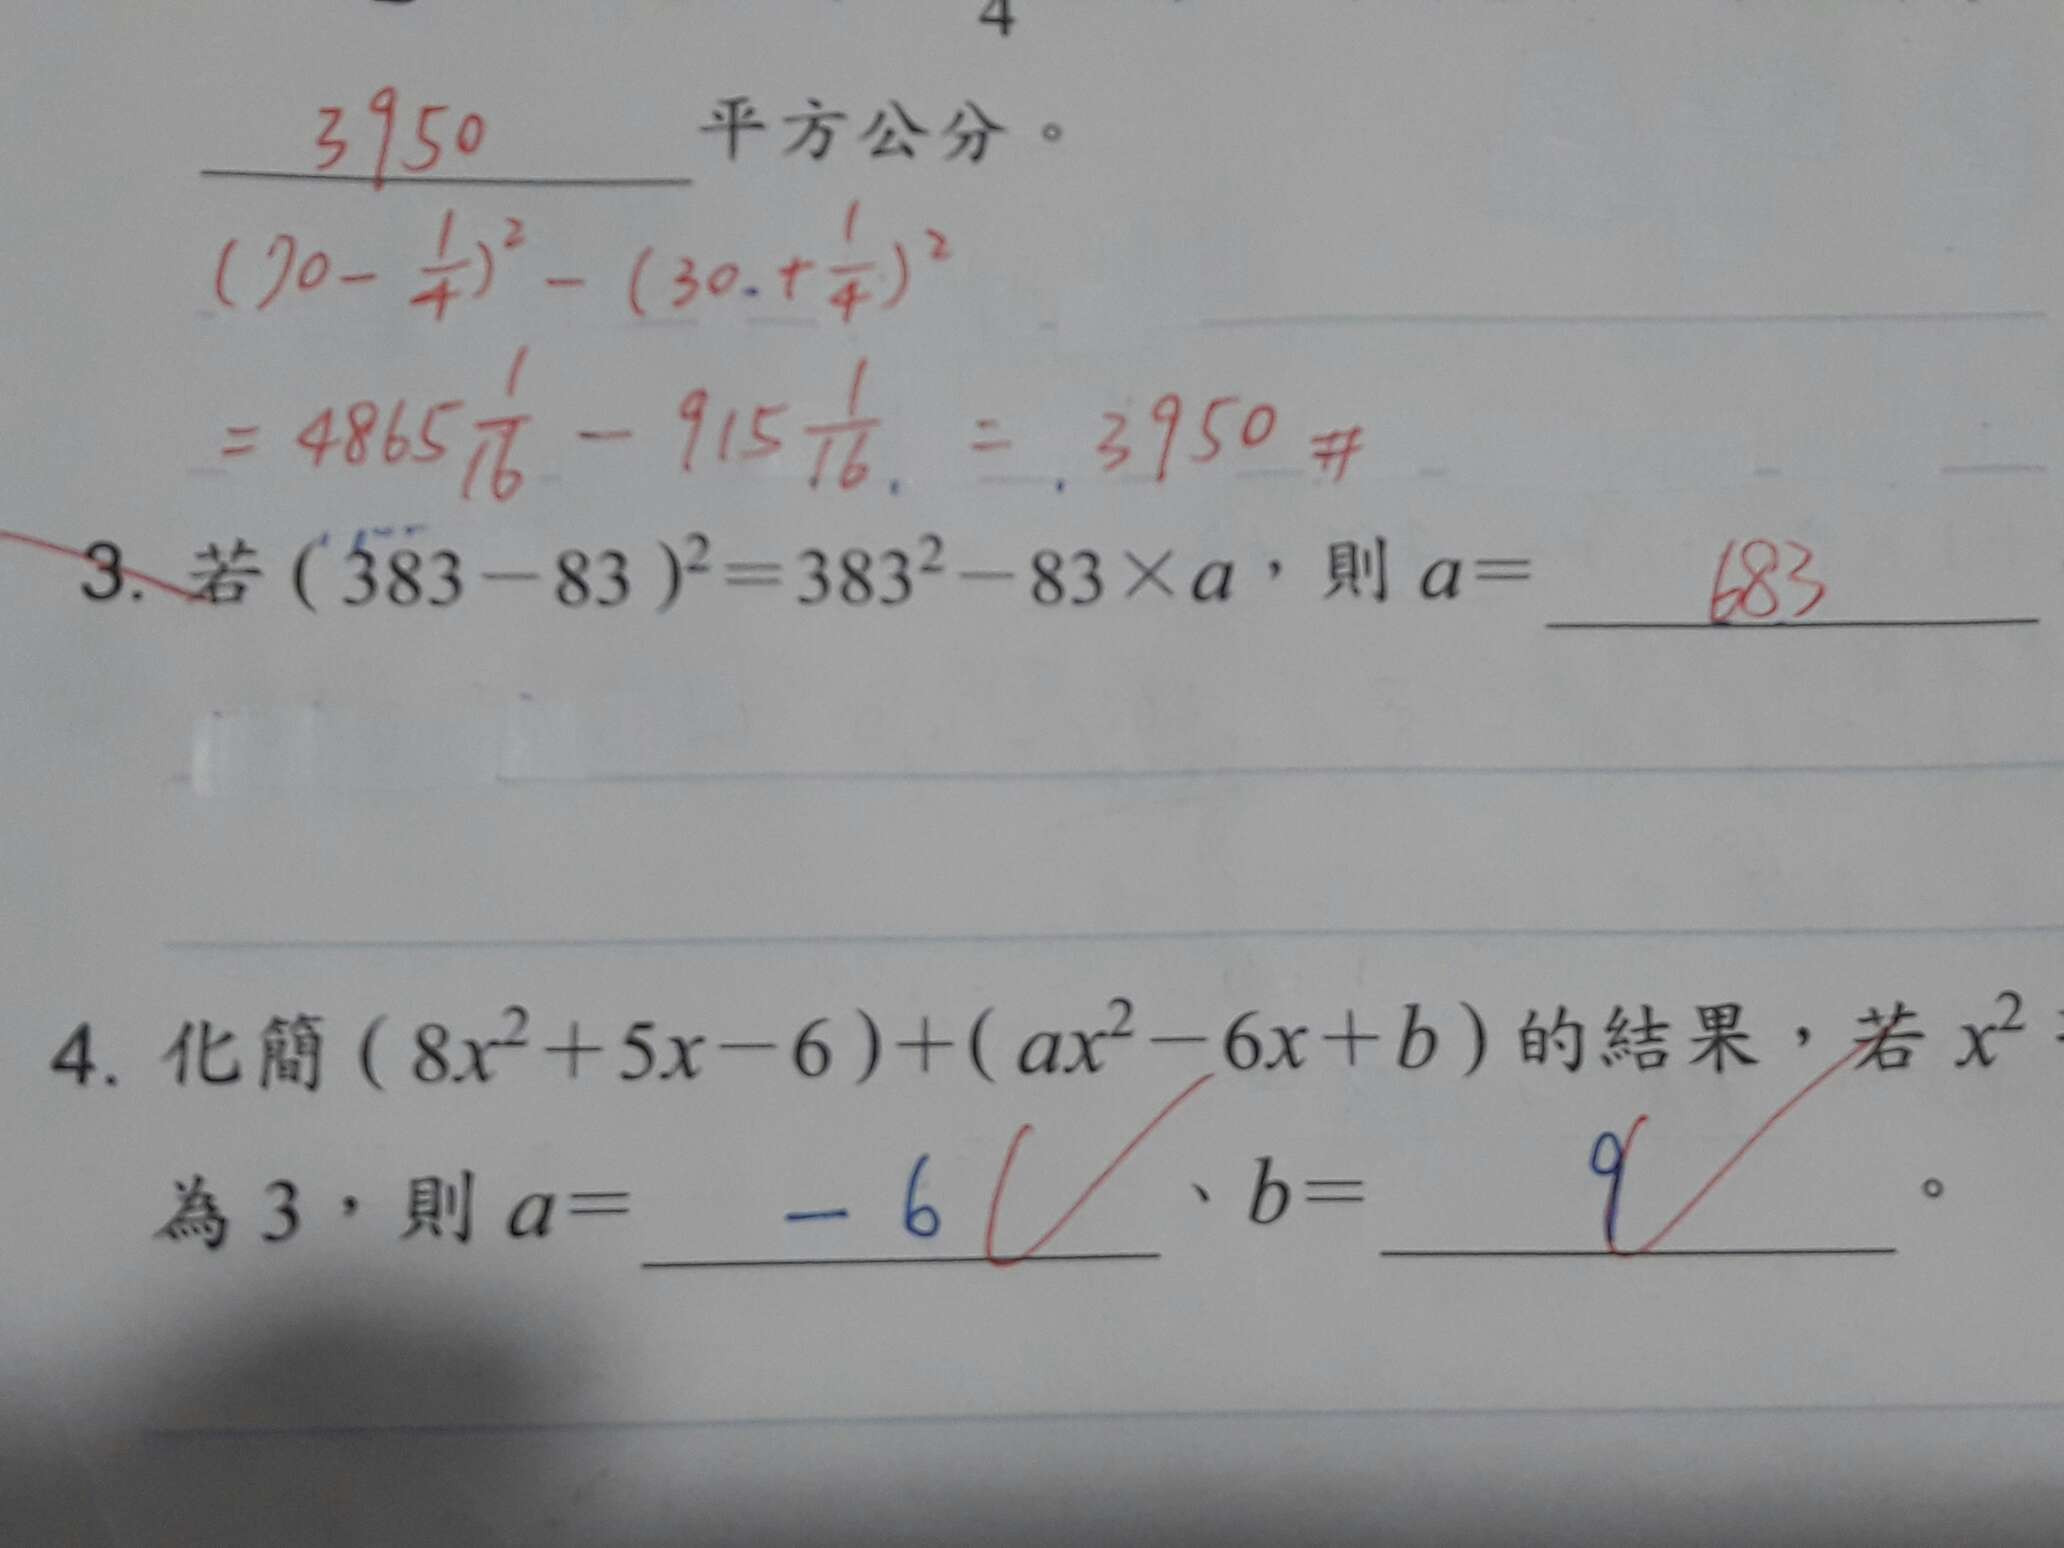 4
3950 平方公分。
(70-1/4)² - (30.+1/4)²
= 4865 1/16 - 915 1/16 = 3950 #
3. 若(383-83)²=383²-83×a,則 a= 683
4. 化簡(8x²+5x-6)+(ax²-6x+b)的結果,若 x²
為 3,則 a= -6 、b= 9 。